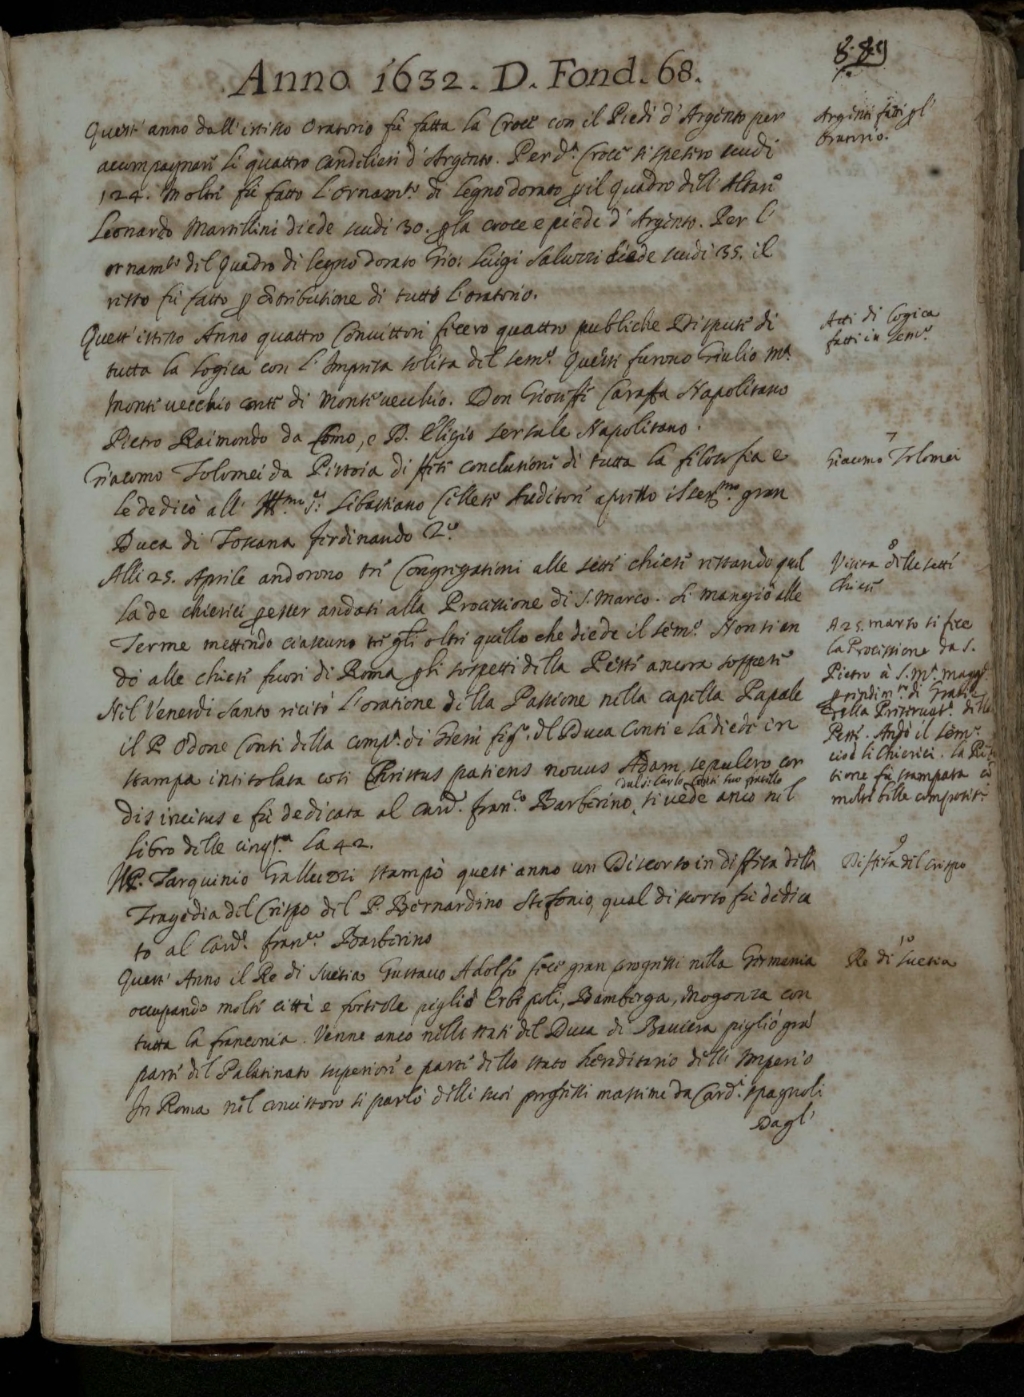 889
Anno 1632. D. Fond. 68.
Quest' anno dall' istesso Oratorio fù fatta la Croce con il Piedi d' Argento per
accompagnare li quattro candilieri d' Argento. Per dª. Croce si spesero scudi
124. Inoltre fù fatto l'ornamto. di legno dorato p il quadro dell' Altare
Leonardo Marsillini diede scudi 30. p la croce e piede d' Argento. Per l'
ornamto. del quadro di legno dorato Gio: Luigi Saluzzi diede scudi 35. il
resto fù fatto p cõtributione di tutto l'oratorio.
Quest' istesso Anno quattro Convittori fecero quattro publiche Dispute di
tutta la Logica con l' Impresa solita del Semo. Questi furono Giulio Mª.
Monte vecchio conte di Monte vecchio. Don Gioseffe Caraffa Napolitano
Pietro Raimondo da Como, e D. Eligio Sersale Napolitano.
Giacomo Tolomei da Pistoia difese conclusioni di tutta la filosofia e
le dedicò all' Illmo. Sr. Sebastiano Cellesi Auditore apresso il Sermo. gran
Duca di Toscana ferdinando 2º.
Alli 25. Aprile andorono tre Congregationi alle sette chiese restando quel
la de chierici p esser andati alla Processione di S. Marco. Si mangiò alle
Terme mettendo ciascuno tre gli oltri quello che diede il Semo. Non si an
dò alle chiese fuori di Roma p li sospetti della Peste ancora sospette
Nel Venerdi Santo recitò l'oratione della Passione nella capella Papale
il P. Odone Conti della Compª. di Giesù figlº. del Duca Conti e la diede in
stampa intitolata così Christus patiens novus Adam sepulcro cor
dal S: Carlo Conti suo fratello
dis incisus e fù dedicata al Card. franco. Barberino, si vede anco nel
libro delle cinqta. la 42.
Il P. Tarquinio Galluzzi stampò quest' anno un Discorso in diffesa della
Tragedia del Crispo del P. Bernardino Stefonio, qual discorso fù dedica
to al Card. franco. Barberino
Quest' Anno il Re di Suetia Gustavo Adolfo fece gran progressi nella Germania
occupando molte città e fortezze pigliò Erbipoli, Bamberga, Mogonza con
tutta la franconia. Venne anco nelli stati del Duca di Baviera pigliò grã
parte del Palatinato superiore e parte dello stato hereditario dell' Imperio
In Roma nel concistoro si parlò delli suoi progressi massime da Card. Spagnoli
Dagl'
Argenti fatti pl'
Oratorio.
Atti di Logica
fatti in Semo.
7
Giacomo Tolomei
8
Visita delle sette
Chiese
A 25. marzo si fece
la Processione da S.
Pietro à S. Mª. magg.
p rendimto. di Gratie
della Peste. Andò il Semo.
cioè li Chierici. la
tione fù stampata
molte belle compositi
9
Diffesa del Crispo
10
Re di Suetia